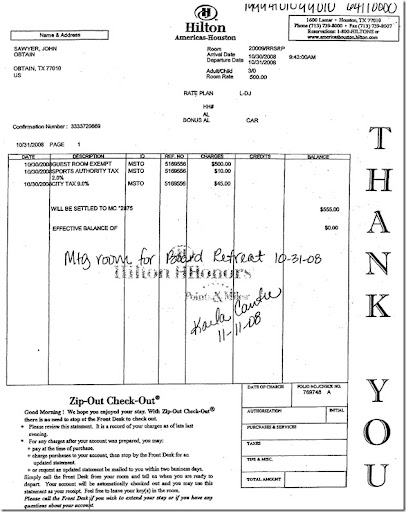 Hilton
Americas-Houston
1600 Lamar • Houston, TX 77010
Phone (713) 739-8000 • Fax (713) 739-8007
Reservations: 1-800-HILTONS or
www.americashouston.hilton.com
Name & Address
SAWYER, JOHN
OBTAIN
OBTAIN, TX 77010
US
Room 20009/RRSRP
Arrival Date 10/30/2008 9:43:00AM
Departure Date 10/31/2008
Adult/Child 3/0
Room Rate 500.00
RATE PLAN L-DJ
HH#
AL
BONUS AL CAR
Confirmation Number : 3333729669
10/31/2008 PAGE 1
DATE DESCRIPTION ID REF. NO CHARGES CREDITS BALANCE
10/30/2008 GUEST ROOM EXEMPT MSTO 5169556 $500.00
10/30/2008 SPORTS AUTHORITY TAX MSTO 5169556 $10.00
2.0%
10/30/2008 CITY TAX 9.0% MSTO 5169556 $45.00
WILL BE SETTLED TO MC *2875 $555.00
EFFECTIVE BALANCE OF $0.00
Mtg room for Board Retreat 10-31-08
Hilton HHonors
Points & Miles
11-11-08
THANK YOU
Zip-Out Check-Out®
Good Morning ! We hope you enjoyed your stay. With Zip-Out Check-Out®
there is no need to stop at the Front Desk to check out.
• Please review this statement. It is a record of your charges as of late last
evening.
• For any charges after your account was prepared, you may:
+ pay at the time of purchase.
+ charge purchases to your account, then stop by the Front Desk for an
updated statement.
+ or request an updated statement be mailed to you within two business days.
Simply call the Front Desk from your room and tell us when you are ready to
depart. Your account will be automatically checked out and you may use this
statement as your receipt. Feel free to leave your key(s) in the room.
Please call the Front Desk if you wish to extend your stay or if you have any
questions about your account.
DATE OF CHARGE FOLIO NO./CHECK NO.
769748 A
AUTHORIZATION INITIAL
PURCHASES & SERVICES
TAXES
TIPS & MISC.
TOTAL AMOUNT